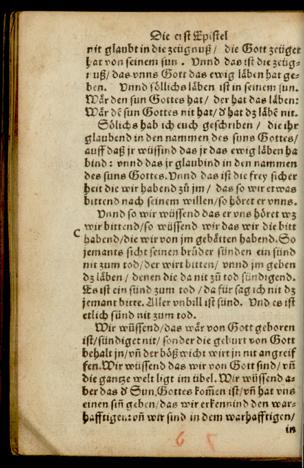 Die erst Epistel
nit glaubt in die zeügnuß / die Gott zeüget
hat von seinem sun. Vnnd das ist die zeüg-
nuß/ das vnns Gott das ewig läben hat ge-
ben. Vnnd söllichs läben ist in seinem sun.
Wär den sun Gottes hat / der hat das läben:
Wär dē sun Gottes nit hat/ d' hat dz läbē nit.
Sölichs hab ich euch geschriben / die ihr
glaubend in den nammen des suns Gottes/
auff daß jr wüssind das jr das ewig läben ha
bind: vnnd das jr glaubind in den nammen
des suns Gottes. Vnnd das ist die frey sicher
heit die wir habend zů jm / das so wir etwas
bittend nach seinem willen/ so höret er vnns.
Vnnd so wir wüssend das er vns höret wz
wir bittend/ so wüssend wir das wir die bitt
C habend/ die wir von jm gebätten habend. So
jemants sicht seinen brůder sünden ein sünd
nit zum tod/ der wirt bitten/ vnnd jm geben
dz läben / denen die da nit zů tod sündigend.
Es ist ein sünd zum tod / da für sag ich nit dz
jemant bitte. Aller vnbill ist sünd. Vnd es ist
etlich sünd nit zum tod.
Wir wüssend/ das wär von Gott geboren
ist/ sündiget nit/ sonder die geburt von Gott
behalt jn/ vñ der bößwicht wirt jn nit angreif
fen. Wir wüssend das wir von Gott sind/ vñ
die gantze welt ligt im übel. Wir wüssend a-
ber das d' Sun Gottes kom̃en ist/ vñ hat vns
einen sin̄ geben/ das wir erkennind den war-
hafftigen: vñ wir sind in dem warhafftigen/
in